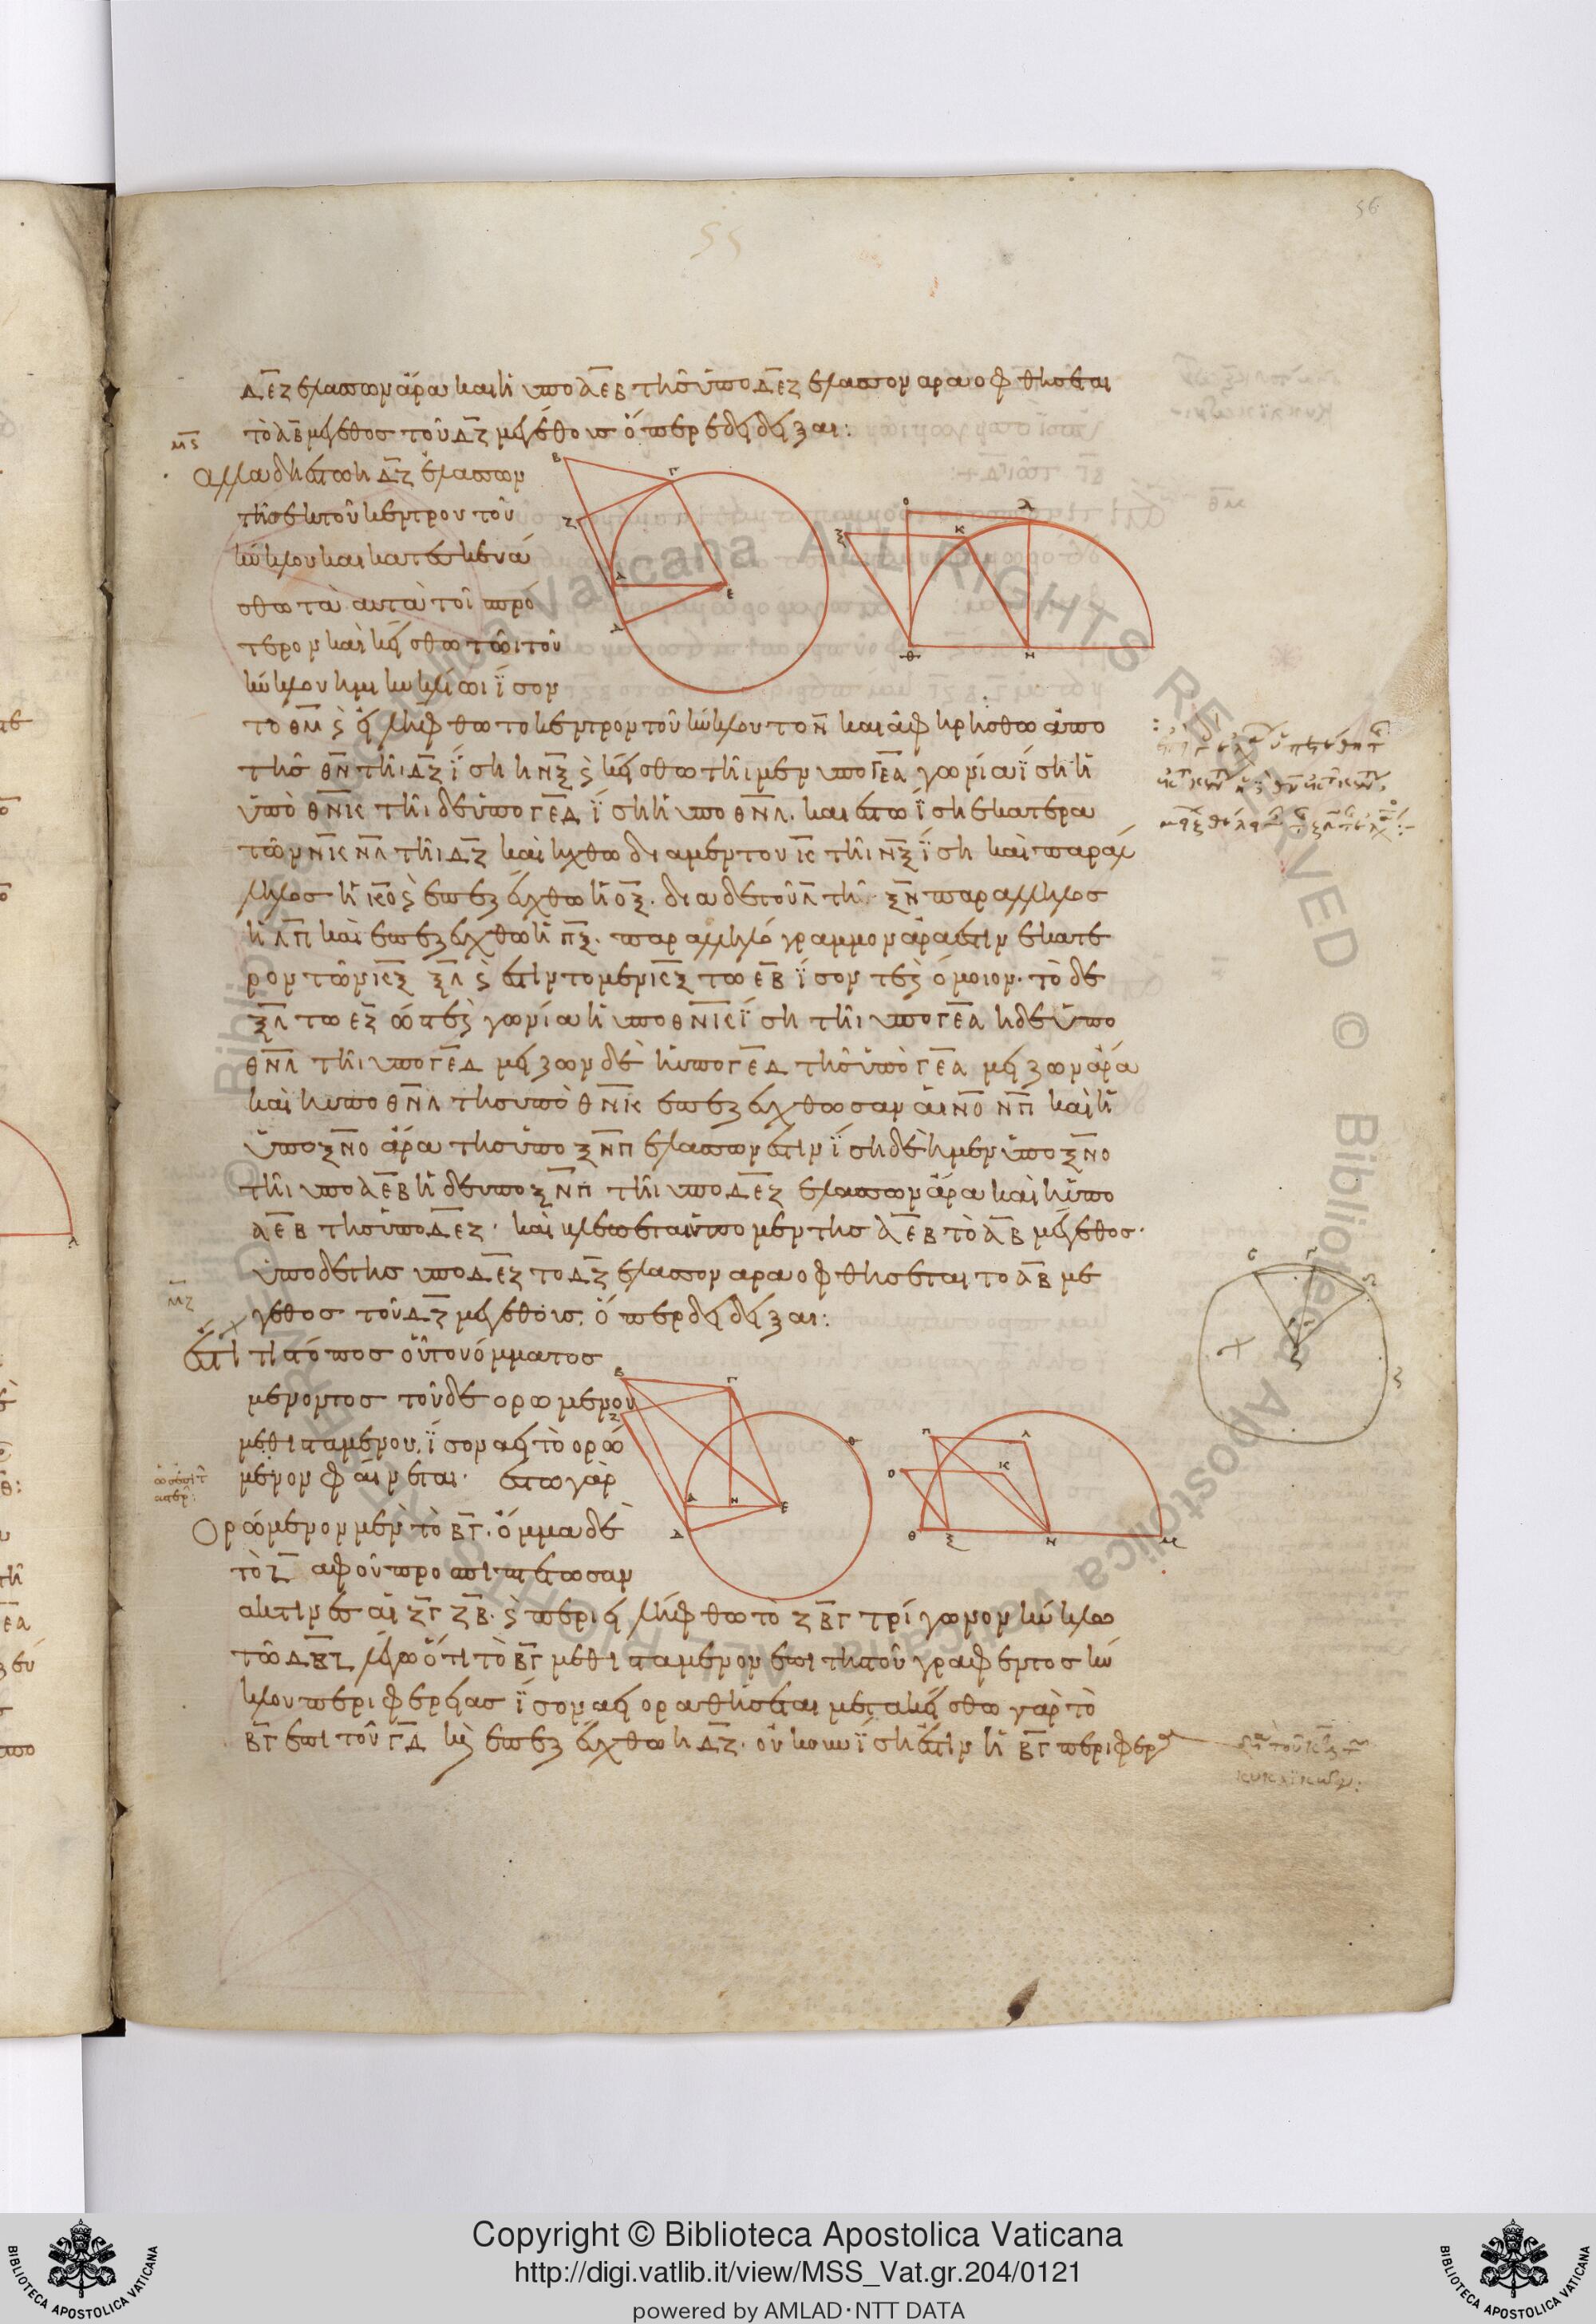 56
55
ΔΕΖ ἐλάσσων ἄρα καὶ ἡ ὑπὸ ΑΕΒ τῆς ὑπὸ ΔΕΖ ἔλασσον ἄρα ὀφθήσεται
τὸ ΑΒ μέγεθος τοῦ ΔΖ μεγέθους ὅπερ ἔδει δεῖξαι:
μς
ἀλλὰ δὴ ἔστω ἡ ΔΖ ἐλάσσων
τῆς ἐκ τοῦ κέντρου τοῦ
κύκλου καὶ κατεσκευά
σθω τὰ αὐτὰ τοῖ πρό
τερον καὶ κείσθω τῶι τοῦ
κύκλου ἡμικυκλίωι ἴσον
τὸ ΘΜ ϛ εἰλήφθω τὸ κέντρον τοῦ κύκλου τὸ Ν καὶ ἀφηρήσθω ἀπὸ
τῆς ΘΝ τῆι ΔΖ ἴση ἡ ΝΞ ϛ κείσθω τῆι μὲν ὑπὸ ΓΕΑ γωνίαι ἴση ἡ
ὑπὸ ΘΝΚ τῆι δὲ ὑπὸ ΓΕΔ ἴση ἡ ὑπὸ ΘΝΛ. καὶ ἔστω ἴση ἑκατέρα
τῶν ΝΚ ΝΛ τῆι ΔΖ καὶ ἤχθω διὰ μὲν τοῦ Κ τῆι ΝΞ ἴση καὶ παράλ
ληλος ἡ ΚΟ ϛ ἐπεζεύχθω ἡ ΟΞ. διὰ δὲ τοῦ Λ τῆι ΞΝ παράλληλος
ἡ ΛΠ καὶ ἐπεζεύχθω ἡ ΠΞ. παραλληλόγραμμον ἄρα ἐστὶν ἑκάτε
ρον τῶν ΚΞ ΞΛ ϛ ἐστὶν τὸ μὲν ΚΞ τῶ ΕΒ ἴσον τε ϛ ὅμοιον. τὸ δὲ
ΞΛ τῶ ΕΖ ὥστε ϛ γωνία ἡ ὑπὸ ΘΝΚ ἴση τῆι ὑπὸ ΓΕΑ ἡ δὲ ὑπὸ
ΘΝΛ τῆι ὑπὸ ΓΕΔ μείζων δὲ ἡ ὑπὸ ΓΕΔ τῆς ὑπὸ ΓΕΑ μείζων ἄρα
καὶ ἡ ὑπὸ ΘΝΛ τῆς ὑπὸ ΘΝΚ ἐπεζεύχθωσαν αἱ ΝΟ ΝΠ καὶ ἡ
ὑπὸ ΞΝΟ ἄρα τῆς ὑπὸ ΞΝΠ ἐλάσσων ἐστὶν ἴση δὲ ἡ μὲν ὑπὸ ΞΝΟ
τῆι ὑπὸ ΑΕΒ ἡ δὲ ὑπὸ ΞΝΠ τῆι ὑπὸ ΔΕΖ ἐλάσσων ἄρα καὶ ἡ ὑπὸ
ΑΕΒ τῆς ὑπὸ ΔΕΖ. καὶ βλέπεται ὑπὸ μὲν τῆς ΑΕΒ τὸ ΑΒ μέγεθος.
ὑπὸ δὲ τῆς ὑπὸ ΔΕΖ τὸ ΔΖ ἔλασσον ἄρα ὀφθήσεται τὸ ΑΒ μέ
γεθος τοῦ ΔΖ μεγέθους. ὅπερ δεῖ δεῖξαι:
μζ
ἔστι τις τόπος οὗ τοῦ ὄμματος
μένοντος τοῦ δὲ ὁρωμένου
μεθισταμένου, ἴσον ἀεὶ τὸ ὁρώ
μενον φαίνεται. ἔστω γὰρ
Ὁρώμενον μὲν τὸ ΒΓ. ὄμμα δὲ
τὸ Ζ ἀφ οὗ προσπιπτέτωσαν
ἀκτίνες αἱ ΖΓ ΖΒ. ϛ περιειλήφθω τὸ ΖΒΓ τρίγωνον κύκλω
τῶ ΔΒΖ λέγω ὅτι τὸ ΒΓ μεθιστάμενον ἐπὶ τῆς τοῦ γραφέντος κύ
κλου περιφερείας ἴσον ἀεὶ ὁραθήσεται μετακείσθω γὰρ τὸ
ΒΓ ἐπὶ τοῦ ΓΔ κὶ ἐπεζεύχθω ἡ ΔΖ. οὐκοῦν ἴση ἐστὶν ἡ ΒΓ περιφέρ
Copyright © Biblioteca Apostolica Vaticana
http://digi.vatlib.it/view/MSS_Vat.gr.204/0121
powered by AMLAD·NTT DATA
BIBLIOTECA APOSTOLICA VATICANA
BIBLIOTECA APOSTOLICA VATICANA